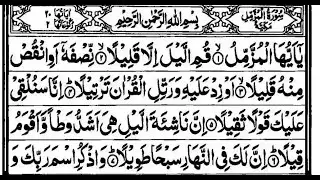 سُوْرَةُ الْمُزَّمِّلِ
بِسْمِ اللهِ الرَّحْمٰنِ الرَّحِيْمِ
اٰيَاتُهَا ٢٠
يٰۤاَيُّهَا الْمُزَّمِّلُ ۝١ قُمِ الَّيْلَ اِلَّا قَلِيْلًا ۝٢ نِّصْفَهٗۤ اَوِ انْقُصْ
مِنْهُ قَلِيْلًا ۝٣ اَوْ زِدْ عَلَيْهِ وَرَتِّلِ الْقُرْاٰنَ تَرْتِيْلًا ۝٤ اِنَّا سَنُلْقِيْ
عَلَيْكَ قَوْلًا ثَقِيْلًا ۝٥ اِنَّ نَاشِئَةَ الَّيْلِ هِيَ اَشَدُّ وَطْاً وَّاَقْوَمُ
قِيْلًا ۝٦ اِنَّ لَكَ فِي النَّهَارِ سَبْحًا طَوِيْلًا ۝٧ وَاذْكُرِ اسْمَ رَبِّكَ وَ